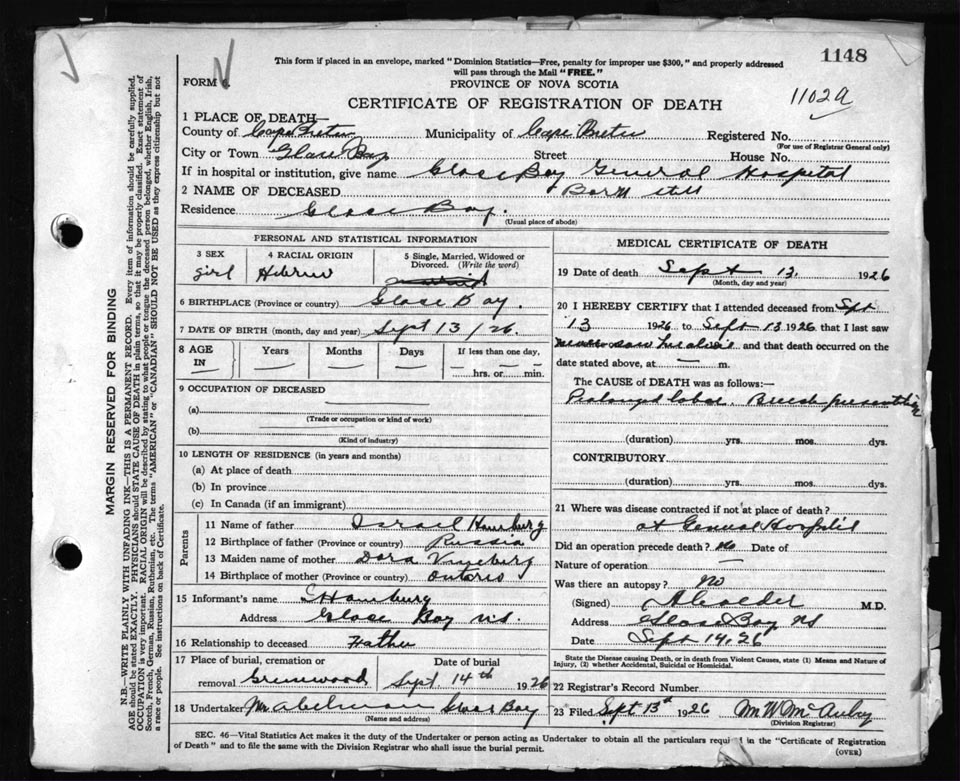 1148
This form if placed in an envelope, marked "Dominion Statistics—Free, penalty for improper use $300," and properly addressed
will pass through the Mail "FREE."
FORM 6.
PROVINCE OF NOVA SCOTIA
CERTIFICATE OF REGISTRATION OF DEATH
1102a
1 PLACE OF DEATH—
County of Cape Breton Municipality of Cape Breton Registered No.
(For use of Registrar General only)
City or Town Glace Bay Street House No.
If in hospital or institution, give name Glace Bay General Hospital
2 NAME OF DECEASED Born still
Residence Glace Bay.
(Usual place of abode)
PERSONAL AND STATISTICAL INFORMATION
3 SEX 4 RACIAL ORIGIN 5 Single, Married, Widowed or
Divorced. (Write the word)
girl Hebrew
6 BIRTHPLACE (Province or country) Glace Bay.
7 DATE OF BIRTH (month, day and year) Sept 13/26.
8 AGE IN Years Months Days If less than one day,
hrs. or min.
9 OCCUPATION OF DECEASED
(a)
(Trade or occupation or kind of work)
(b)
(Kind of industry)
10 LENGTH OF RESIDENCE (in years and months)
(a) At place of death
(b) In province
(c) In Canada (if an immigrant)
Parents
11 Name of father Israel Hamburg
12 Birthplace of father (Province or country) Russia
13 Maiden name of mother Dora Vineberg
14 Birthplace of mother (Province or country) Ontario
15 Informant's name I Hamburg
Address Glace Bay N.S.
16 Relationship to deceased Father
17 Place of burial, cremation or Date of burial
removal Greenwood Sept. 14th 1926
18 Undertaker M Abelman Glace Bay
(Name and address)
MEDICAL CERTIFICATE OF DEATH
19 Date of death Sept 13, 1926
(Month, day and year)
20 I HEREBY CERTIFY that I attended deceased from Spt
13 1926 to Sept 13 1926 that I last saw
never saw her alive and that death occurred on the
date stated above, at — m.
The CAUSE of DEATH was as follows:—
Prolonged labor. Breech presentation
(duration) yrs. mos. dys.
CONTRIBUTORY
(duration) yrs. mos. dys.
21 Where was disease contracted if not at place of death?
at General Hospital
Did an operation precede death? No Date of
Nature of operation —
Was there an autopsy? no
(Signed) M.D.
Address Glace Bay NS
Date Sept 14, 26
State the Disease causing Death, or in death from Violent Causes, state (1) Means and Nature of
Injury, (2) whether Accidental, Suicidal or Homicidal.
22 Registrar's Record Number
23 Filed Sept 13th 1926
(Division Registrar)
SEC. 46—Vital Statistics Act makes it the duty of the Undertaker or person acting as Undertaker to obtain all the particulars required in the "Certificate of Registration
of Death" and to file the same with the Division Registrar who shall issue the burial permit.
(OVER)
MARGIN RESERVED FOR BINDING
N.B.—WRITE PLAINLY WITH UNFADING INK—THIS IS A PERMANENT RECORD. Every item of information should be carefully supplied.
AGE should be stated EXACTLY. PHYSICIANS should STATE CAUSE OF DEATH in plain terms, so that it may be properly classified. Exact statement of
OCCUPATION is very important. RACIAL ORIGIN will be described by stating to what people or tongue the deceased person belonged, whether English, Irish,
Scotch, French, German, Russian, Ruthenian, etc. The terms "AMERICAN" or "CANADIAN" SHOULD NOT BE USED as they express citizenship but not
a race or people. See instructions on back of Certificate.